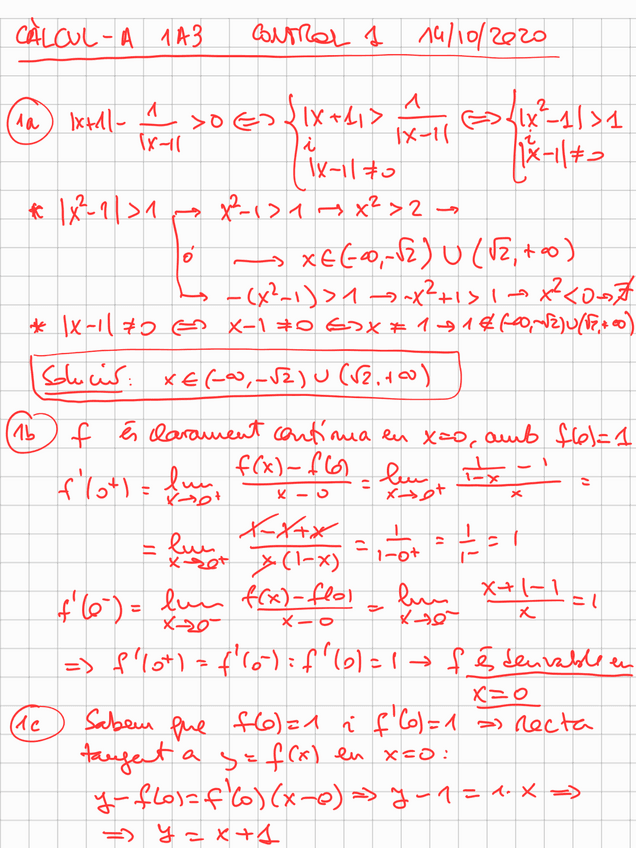 CÀLCUL-A 1A3 CONTROL 1 14/10/2020
1a) |x+1| - 1/|x-1| > 0 ⟺ { |x+1| > 1/|x-1| i |x-1| ≠ 0 ⟺ { |x²-1| > 1 i |x-1| ≠ 0
* |x²-1| > 1 → x²-1 > 1 → x² > 2 →
ó → x ∈ (-∞, -√2) ∪ (√2, +∞)
→ -(x²-1) > 1 → -x²+1 > 1 → x² < 0 → ∄
* |x-1| ≠ 0 ⟺ x-1 ≠ 0 ⟺ x ≠ 1 → 1 ∉ (-∞, -√2) ∪ (√2, +∞)
Solució: x ∈ (-∞, -√2) ∪ (√2, +∞)
1b) f és clarament contínua en x=0, amb f(0)=1
f'(0⁺) = lim x→0⁺ (f(x)-f(0))/(x-0) = lim x→0⁺ (1/(1-x) - 1)/x =
= lim x→0⁺ (1-1+x)/(x(1-x)) = 1/(1-0⁺) = 1/1⁻ = 1
f'(0⁻) = lim x→0⁻ (f(x)-f(0))/(x-0) = lim x→0⁻ (x+1-1)/x = 1
⟹ f'(0⁺) = f'(0⁻) = f'(0) = 1 → f és derivable en
x=0
1c) Sabem que f(0)=1 i f'(0)=1 ⟹ recta
tangent a y = f(x) en x=0:
y-f(0) = f'(0)(x-0) ⟹ y-1 = 1·x ⟹
⟹ y = x+1